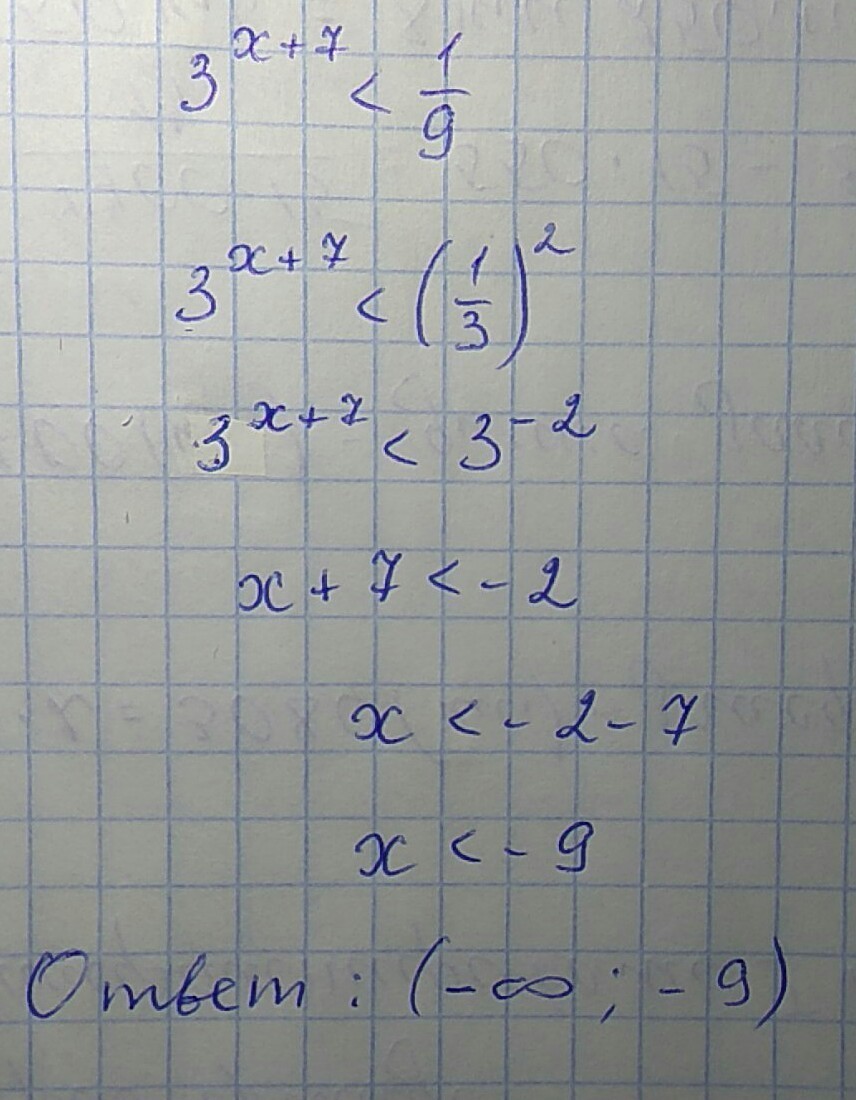 3^{x+7} < \frac{1}{9}
3^{x+7} < \left(\frac{1}{3}\right)^2
3^{x+7} < 3^{-2}
x + 7 < - 2
x < - 2 - 7
x < - 9
Ответ : (-∞ ; - 9)